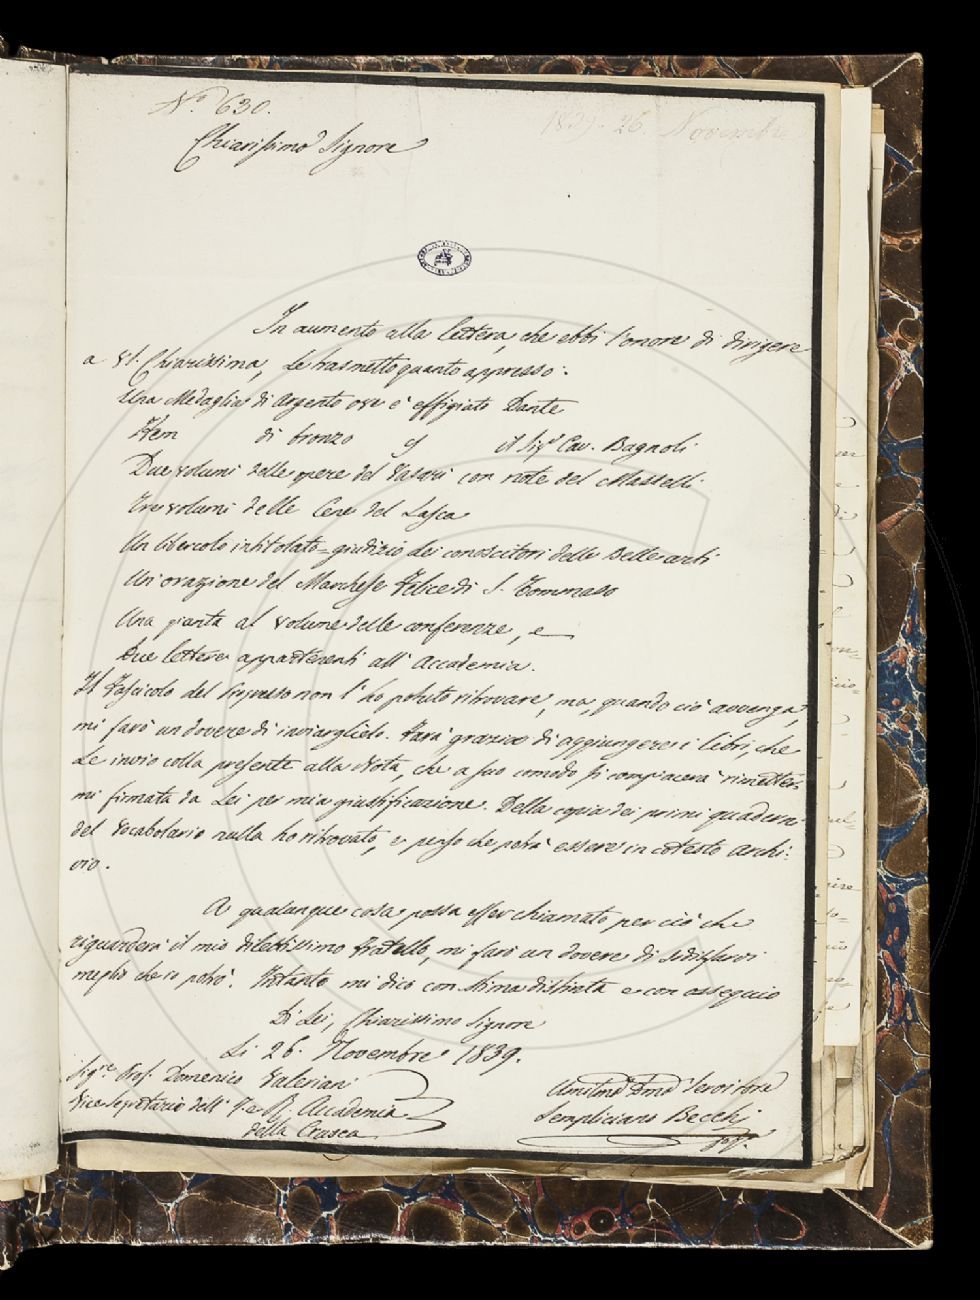 N.o 630.
1839. 26. Novembre
Chiarissimo Signore
In aumento alla lettera, che ebbi l'onore di dirigere
a V.S. Chiarissima, Le trasmetto quanto appresso:
Una Medaglia di Argento ove è effigiato Dante
Item di bronzo il Sig.r Cav. Bagnoli
Due volumi delle opere del Vasari con note del Masselli
Tre volumi delle Cene del Lasca
Un libercolo intitolato = giudizio dei conoscitori delle Belle arti
Un'orazione del Marchese Felice di S. Tommaso
Una pianta al volume delle conferenze, e
Due lettere appartenenti all'Accademia.
Il Fascicolo del Progresso non l'ho potuto ritrovare, ma, quando ciò avvenga,
mi farò un dovere di inviarglielo. Farà grazia di aggiungere i libri, che
Le invio colla presente alla Nota, che a suo comodo si compiacerà rimetter=
mi firmata da Lei per mia giustificazione. Della copia dei primi quaderni
del Vocabolario nulla ho ritrovato, e penso che potrà essere in cotesto archi=
vio.
A qualunque cosa possa esser chiamato per ciò che
riguarderà il mio dilettissimo Fratello, mi farò un dovere di sodisfarvi
meglio che io potrò. Intanto mi dico con stima distinta e con ossequio
Di Lei, Chiarissimo Signore
Li 26. Novembre 1839.
Sig.re Prof. Domenico Valeriani
Vice Segretario dell'I. e R. Accademia
della Crusca
Umilmo Dmo Servitore
Sempliciano Becchi